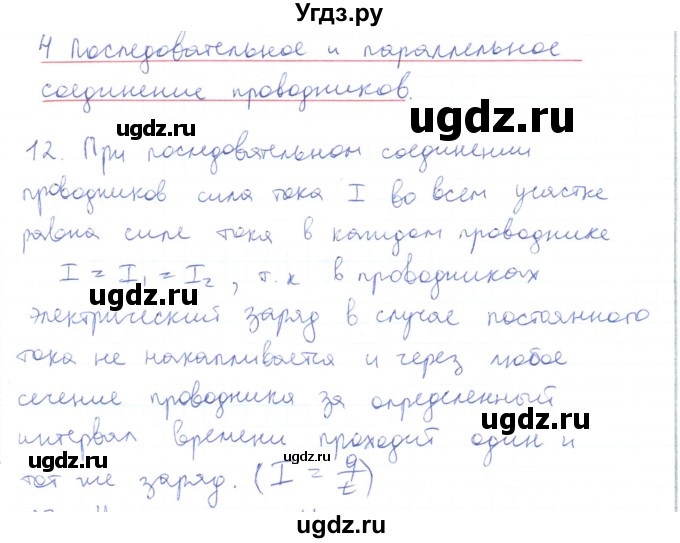 Угдз.ру
4 Последовательное и параллельное
соединение проводников.
ugdz.ru
12. При последовательном соединении
проводников сила тока I во всем участке
ugdz.ru
равна силе тока в каждом проводнике
I = I₁ = I₂, т. к в проводниках
ugdz.ru
электрический заряд в случае постоянного
тока не накапливается и через любое
ugdz.ru
сечение проводника за определенный
интервал времени проходит один и
ugdz.ru
ugdz.ru
тот же заряд. (I = q/t)
ugdz.ru